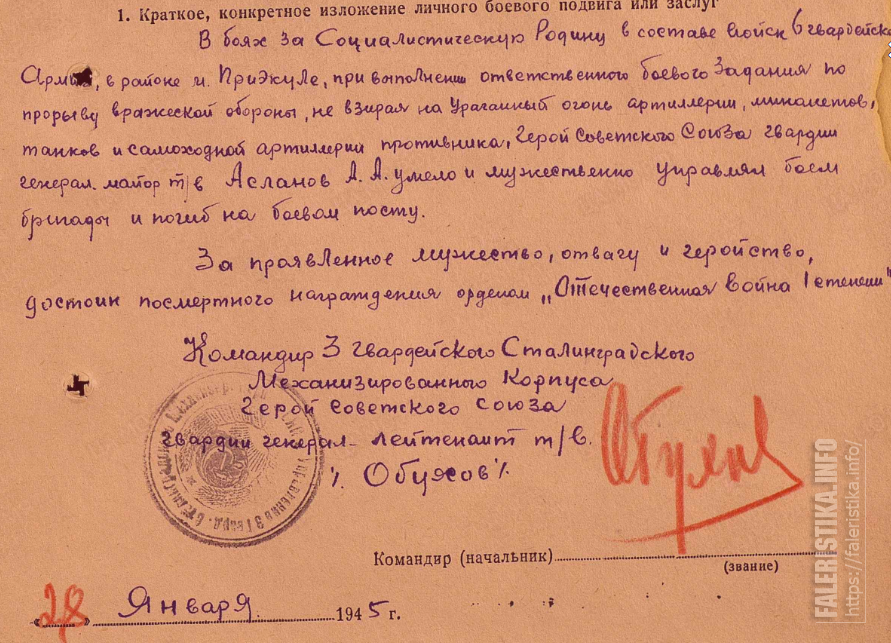 1. Краткое, конкретное изложение личного боевого подвига или заслуг
В боях за Социалистическую Родину в составе войск 6 гвардейской
Армии, в районе м. Приэкуле, при выполнении ответственного боевого задания по
прорыву вражеской обороны, не взирая на ураганный огонь артиллерии, минометов,
танков и самоходной артиллерии противника, Герой Советского Союза гвардии
генерал-майор т/в Асланов А. А. умело и мужественно управлял боем
бригады и погиб на боевом посту.
За проявленное мужество, отвагу и геройство,
достоин посмертного награждения орденом „Отечественная Война I степени"
Командир 3 гвардейского Сталинградского
Механизированного Корпуса
Герой Советского Союза
гвардии генерал-лейтенант т/в.
/. Обухов /.
Командир (начальник)
(звание)
„28" Января 1945 г.
FALERISTIKA.INFO
https://faleristika.info/